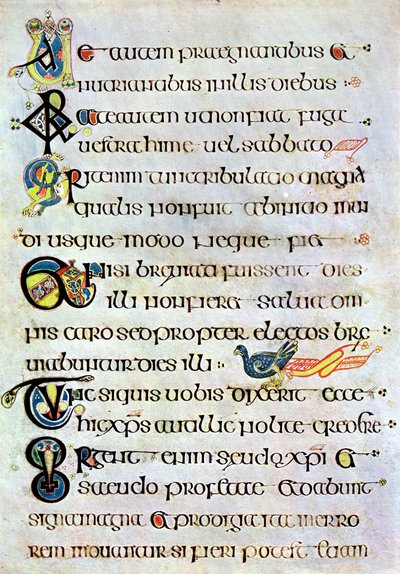 Uae autem praegnantibus et
nutrientibus inillis diebus
Orate autem ut non fiat fuga
uestra hime uel sabbato
Erit enim tunc tribulatio magna
qualis non fuit ab initio mun
di usque modo neque fia
Et nisi breuiati fuissent dies
illi non fieret salua om
nis caro sed propter electos bre
uiabuntur dies illi
Tunc siquis uobis dixerit ecce
hic xps aut illic nolite credere
Surgent enim seudoxpi et
seudo profetae et dabunt
signa magna et prodigia ita in erro
rem mouantur si fieri potest etiam